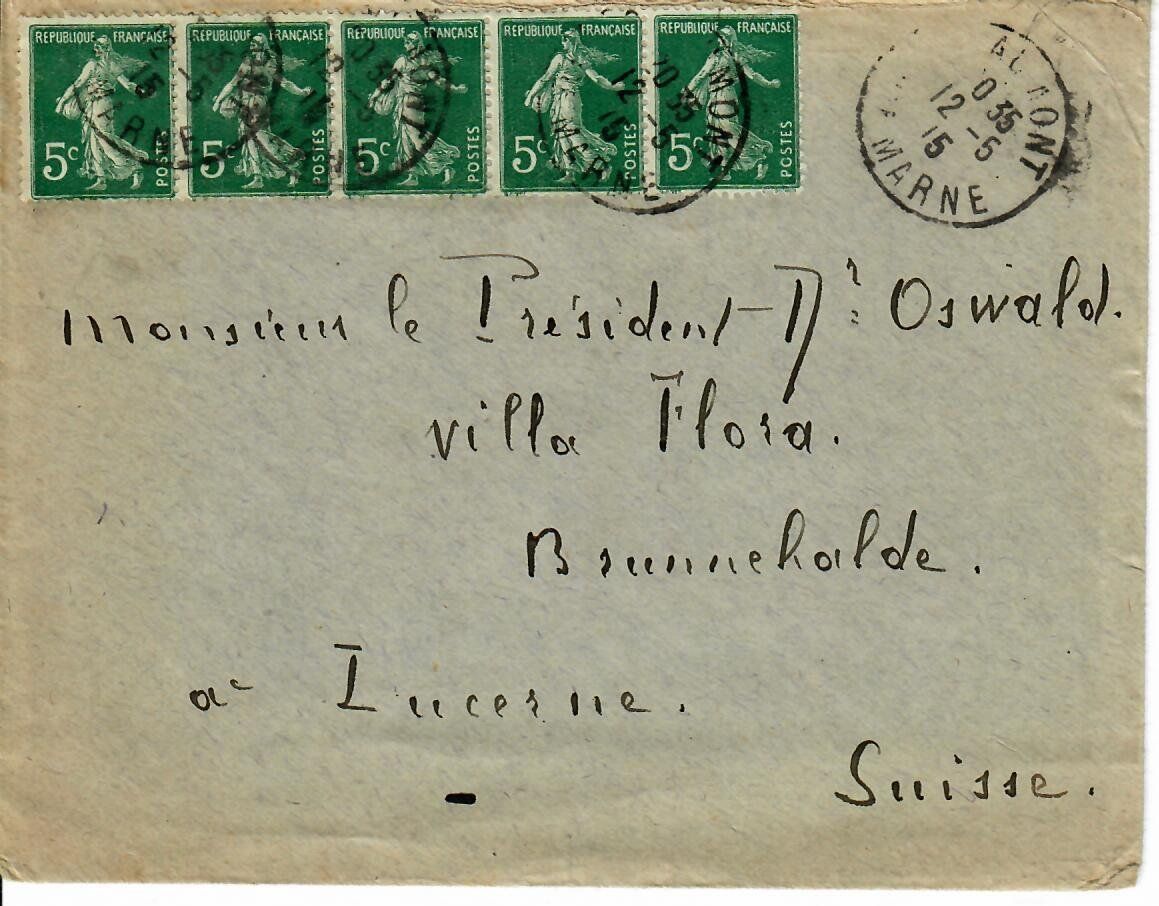 REPUBLIQUE FRANÇAISE REPUBLIQUE FRANÇAISE REPUBLIQUE FRANÇAISE REPUBLIQUE FRANÇAISE REPUBLIQUE FRANÇAISE
5c POSTES 5c POSTES 5c POSTES 5c POSTES 5c POSTES
0 35
12 - 5
15
MARNE
Monsieur le Président Dr: Oswald.
Villa Flora.
Brunnehalde.
a Lucerne.
Suisse.